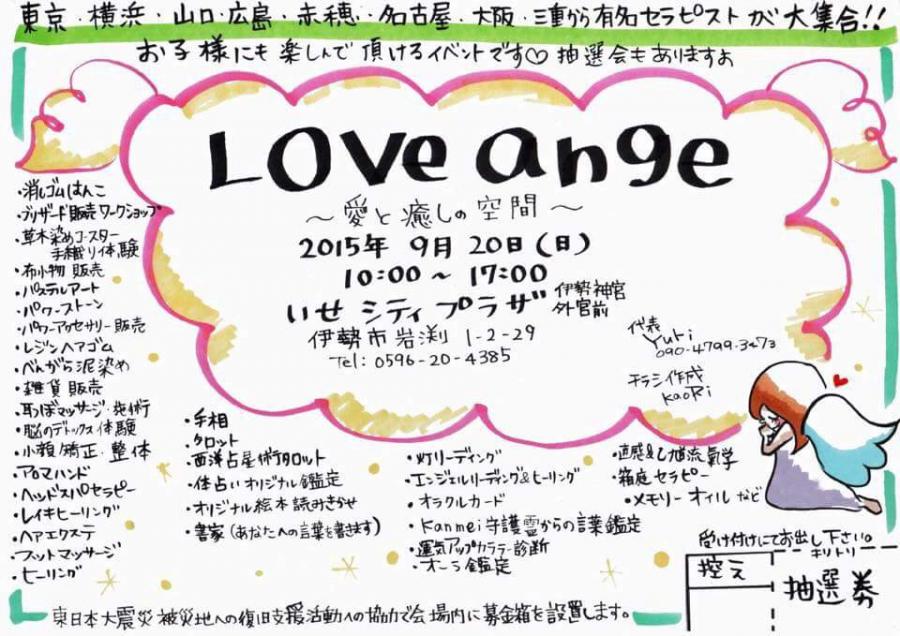 東京・横浜・山口・広島・赤穂・名古屋・大阪・三重から有名セラピストが大集合!!
お子様にも楽しんで頂けるイベントです♡ 抽選会もありますよ
LOVe ange
～愛と癒しの空間～
2015年 9月 20日(日)
10:00～17:00
いせ シティ プラザ 伊勢神宮
外宮前
伊勢市岩渕 1-2-29
Tel: 0596-20-4385
代表
Yuri
090-4799-3473
チラシ作成
kaoRi
・消しゴムはんこ
・ブリザード販売ワークショップ
・草木染めコースター
手織り体験
・布小物 販売
・パステルアート
・パワーストーン
・パワーアクセサリー販売
・レジンヘアゴム
・べんがら泥染め
・雑貨 販売
・耳つぼマッサージ・
・脳のデトックス体験
・小顔矯正・整体
・アロマハンド
・ヘッドスパセラピー
・レイキヒーリング
・ヘアエクステ
・フットマッサージ
・ヒーリング
・手相
・タロット
・西洋占星術タロット
・体占いオリジナル鑑定
・オリジナル絵本読みきかせ
・書家(あなたへの言葉を書きます)
・灯リーディング
・エンジェルリーディング&ヒーリング
・オラクルカード
・Kanmei守護霊からの言葉鑑定
・運気アップカラー診断
・オーラ鑑定
・直感&七旭流氣学
・箱庭セラピー
・メモリーオイル など
受け付けにてお出し下さい。
キリトリ
控え
抽選券
東日本大震災被災地への復旧支援活動への協力で会場内に募金箱を設置します。